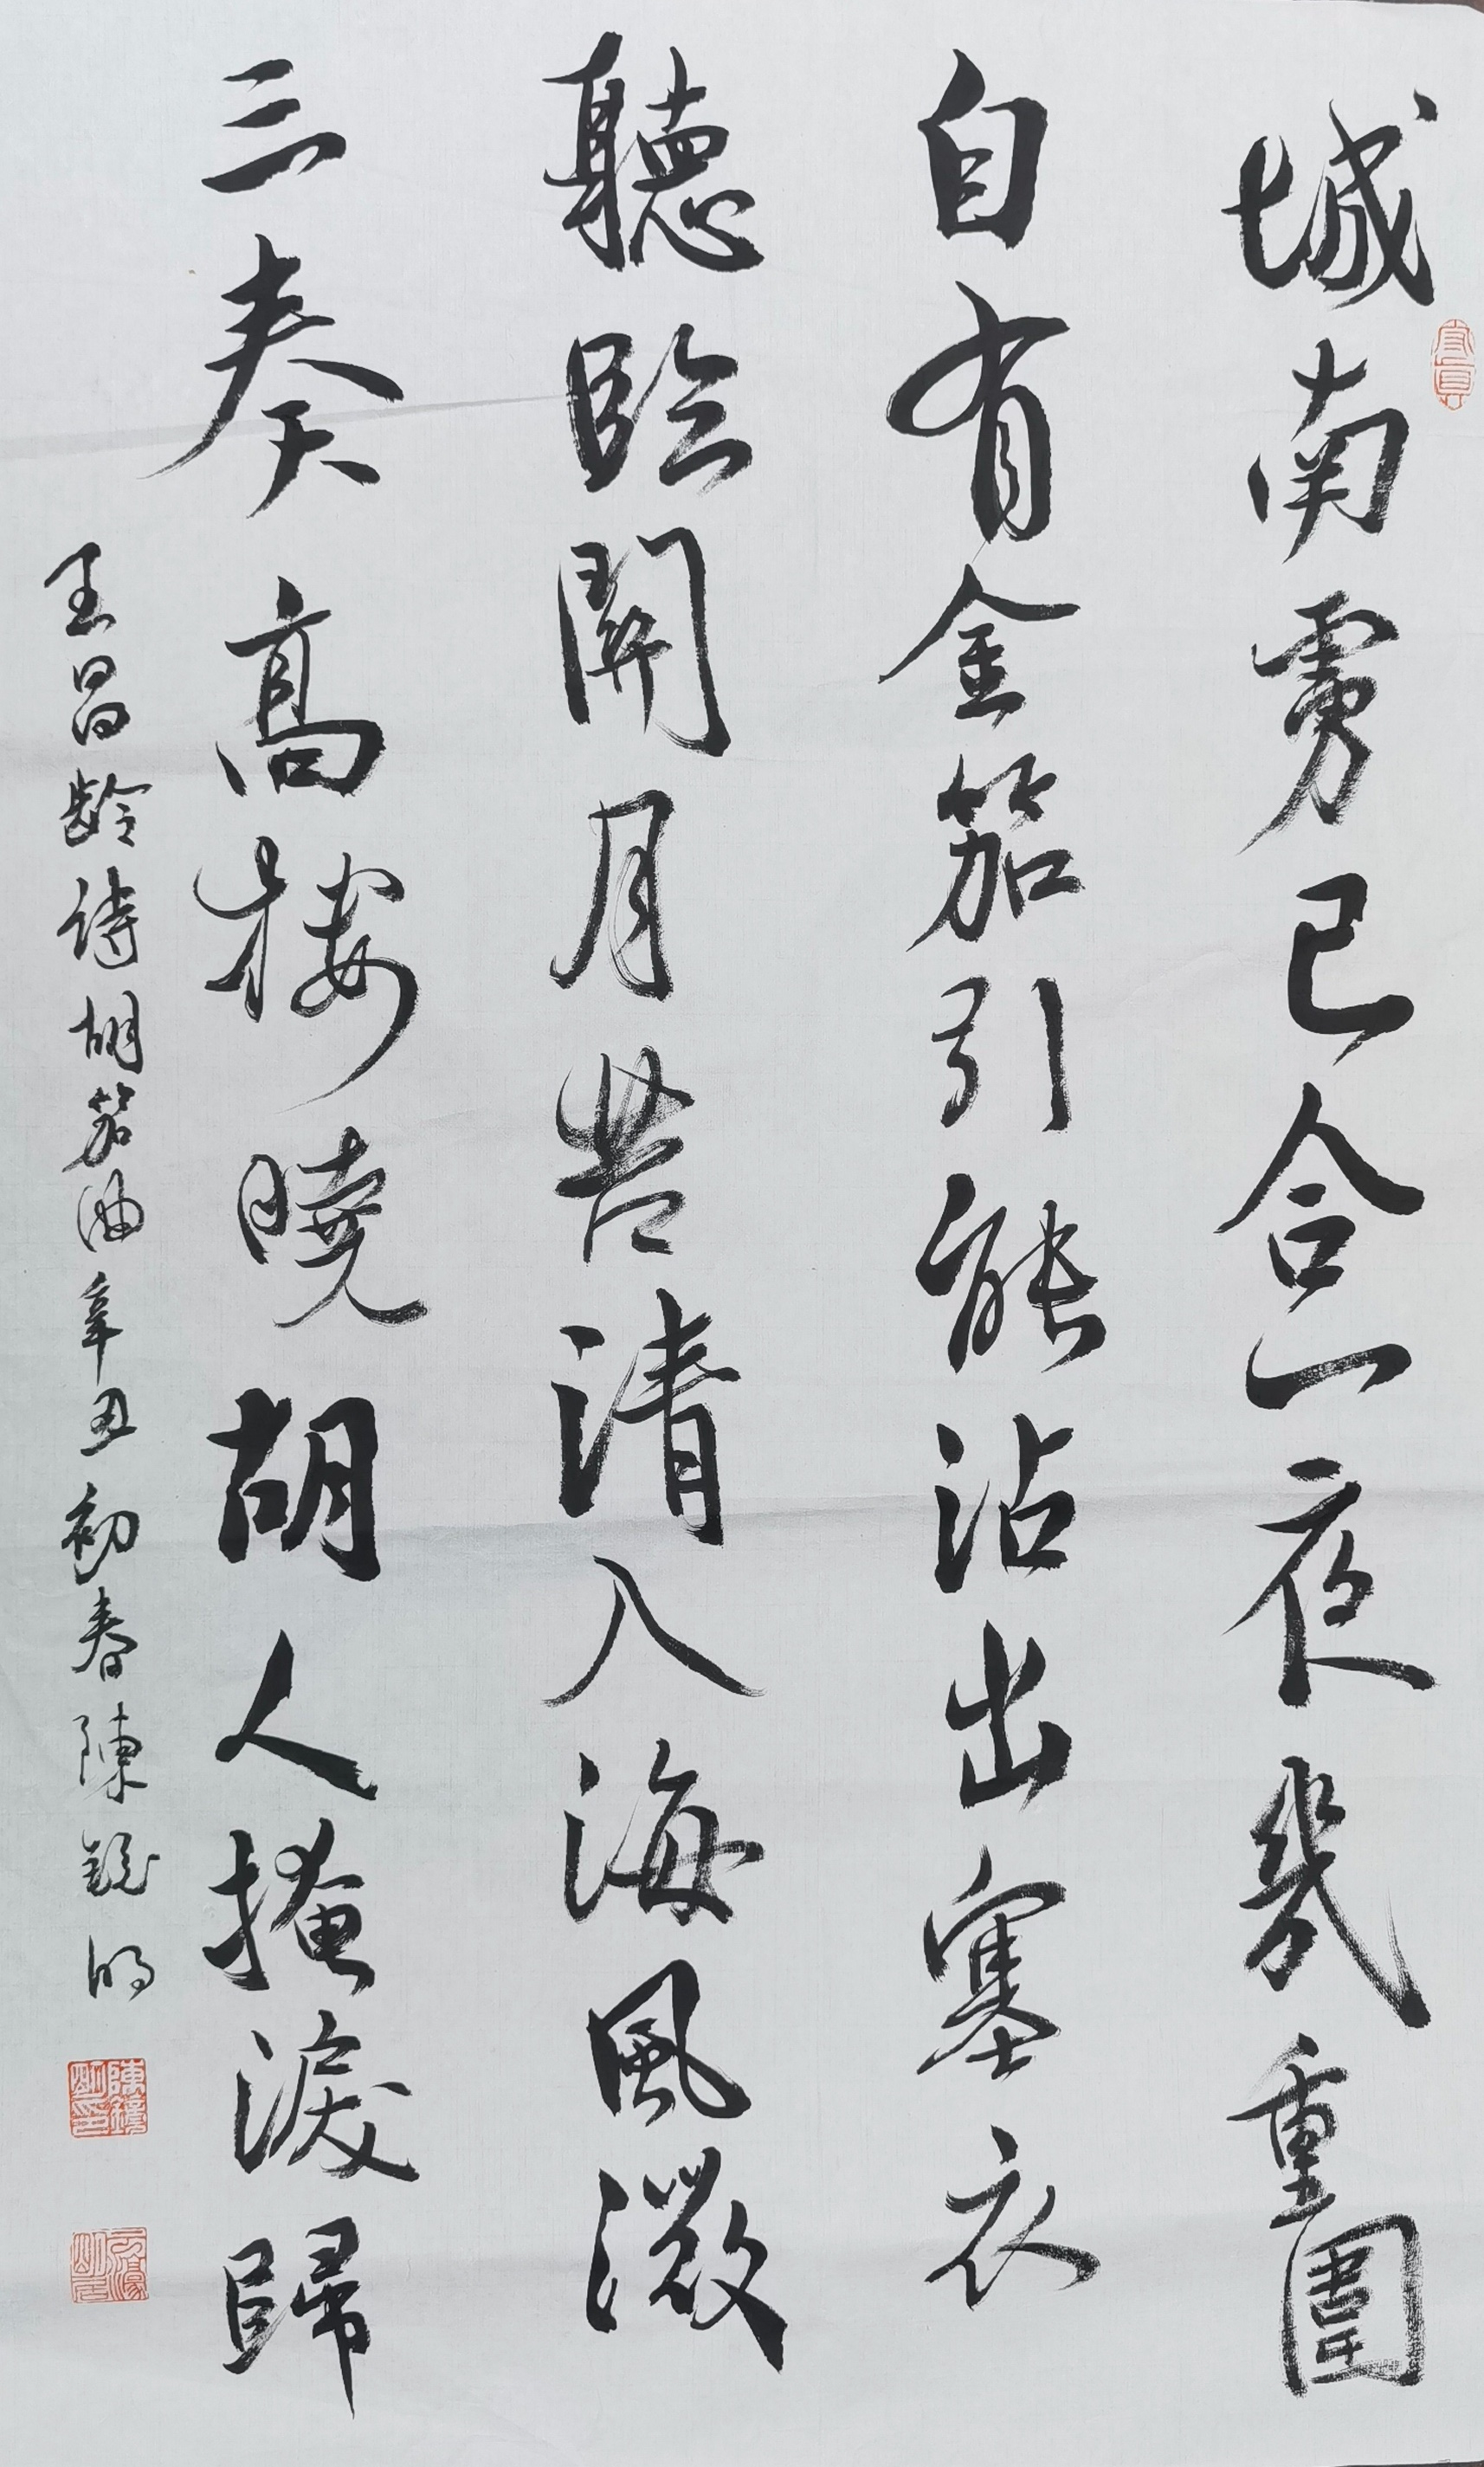 城南虜已合一夜幾重圍
自有金笳引能沾出塞衣
聽臨關月苦清入海風微
三奏高樓曉胡人掩淚歸
王昌齡詩胡笳曲辛丑初春陳明